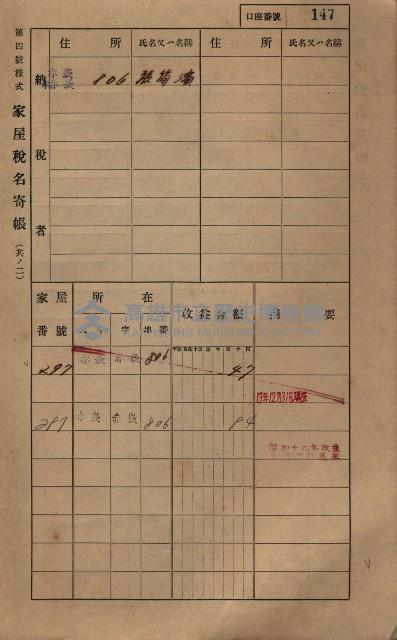 口座番號 147
第四號樣式 家屋稅名寄帳 (其ノ二)
住所 氏名又ハ名稱 住所 氏名又ハ名稱
納稅者
赤崁 806 張
赤崁
家屋番號 所在 收金額 摘要
字 地番
高雄市立歷史博物館
KAOHSIUNG MUSEUM OF HISTORY
297 赤崁 赤崁 806 47
13年12月31日現在
287 赤崁 赤崁 806 84
昭和十九年改義